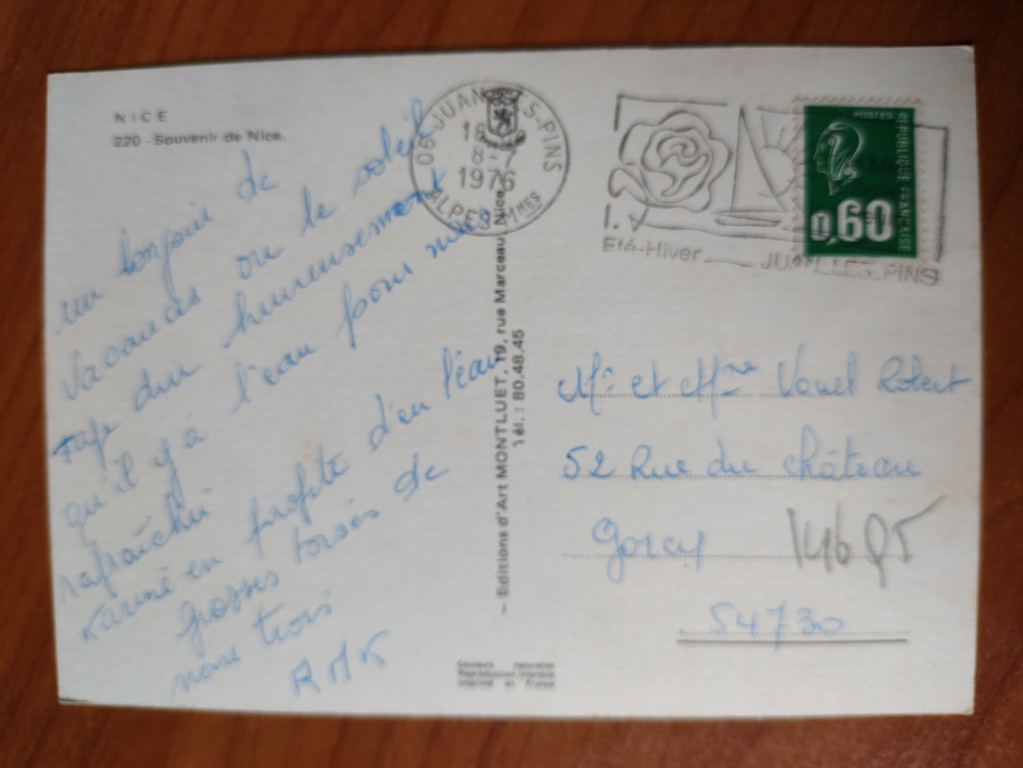 NICE
220 - Souvenir de Nice.
un bonjour de
vacances ou le soleil
tap dur heureusement
qu'il y à l'eau pour nous
rafraîchir
Karine en profite d'en l'eau
grosses bises de
nous trois
R M K
- Editions d'Art MONTLUET, 19, rue Marceau Nice
Tél. : 80.48.45
Couleurs naturelles
Reproduction interdite
Imprimé en France
06 JUAN-LES-PINS
8-7
1976
ALPES Mmes
Eté-Hiver JUAN-LES-PINS
POSTES
REPUBLIQUE FRANÇAISE
0,60
Mr et Mme Vouel Robert
52 Rue du château
Gorcy
54730